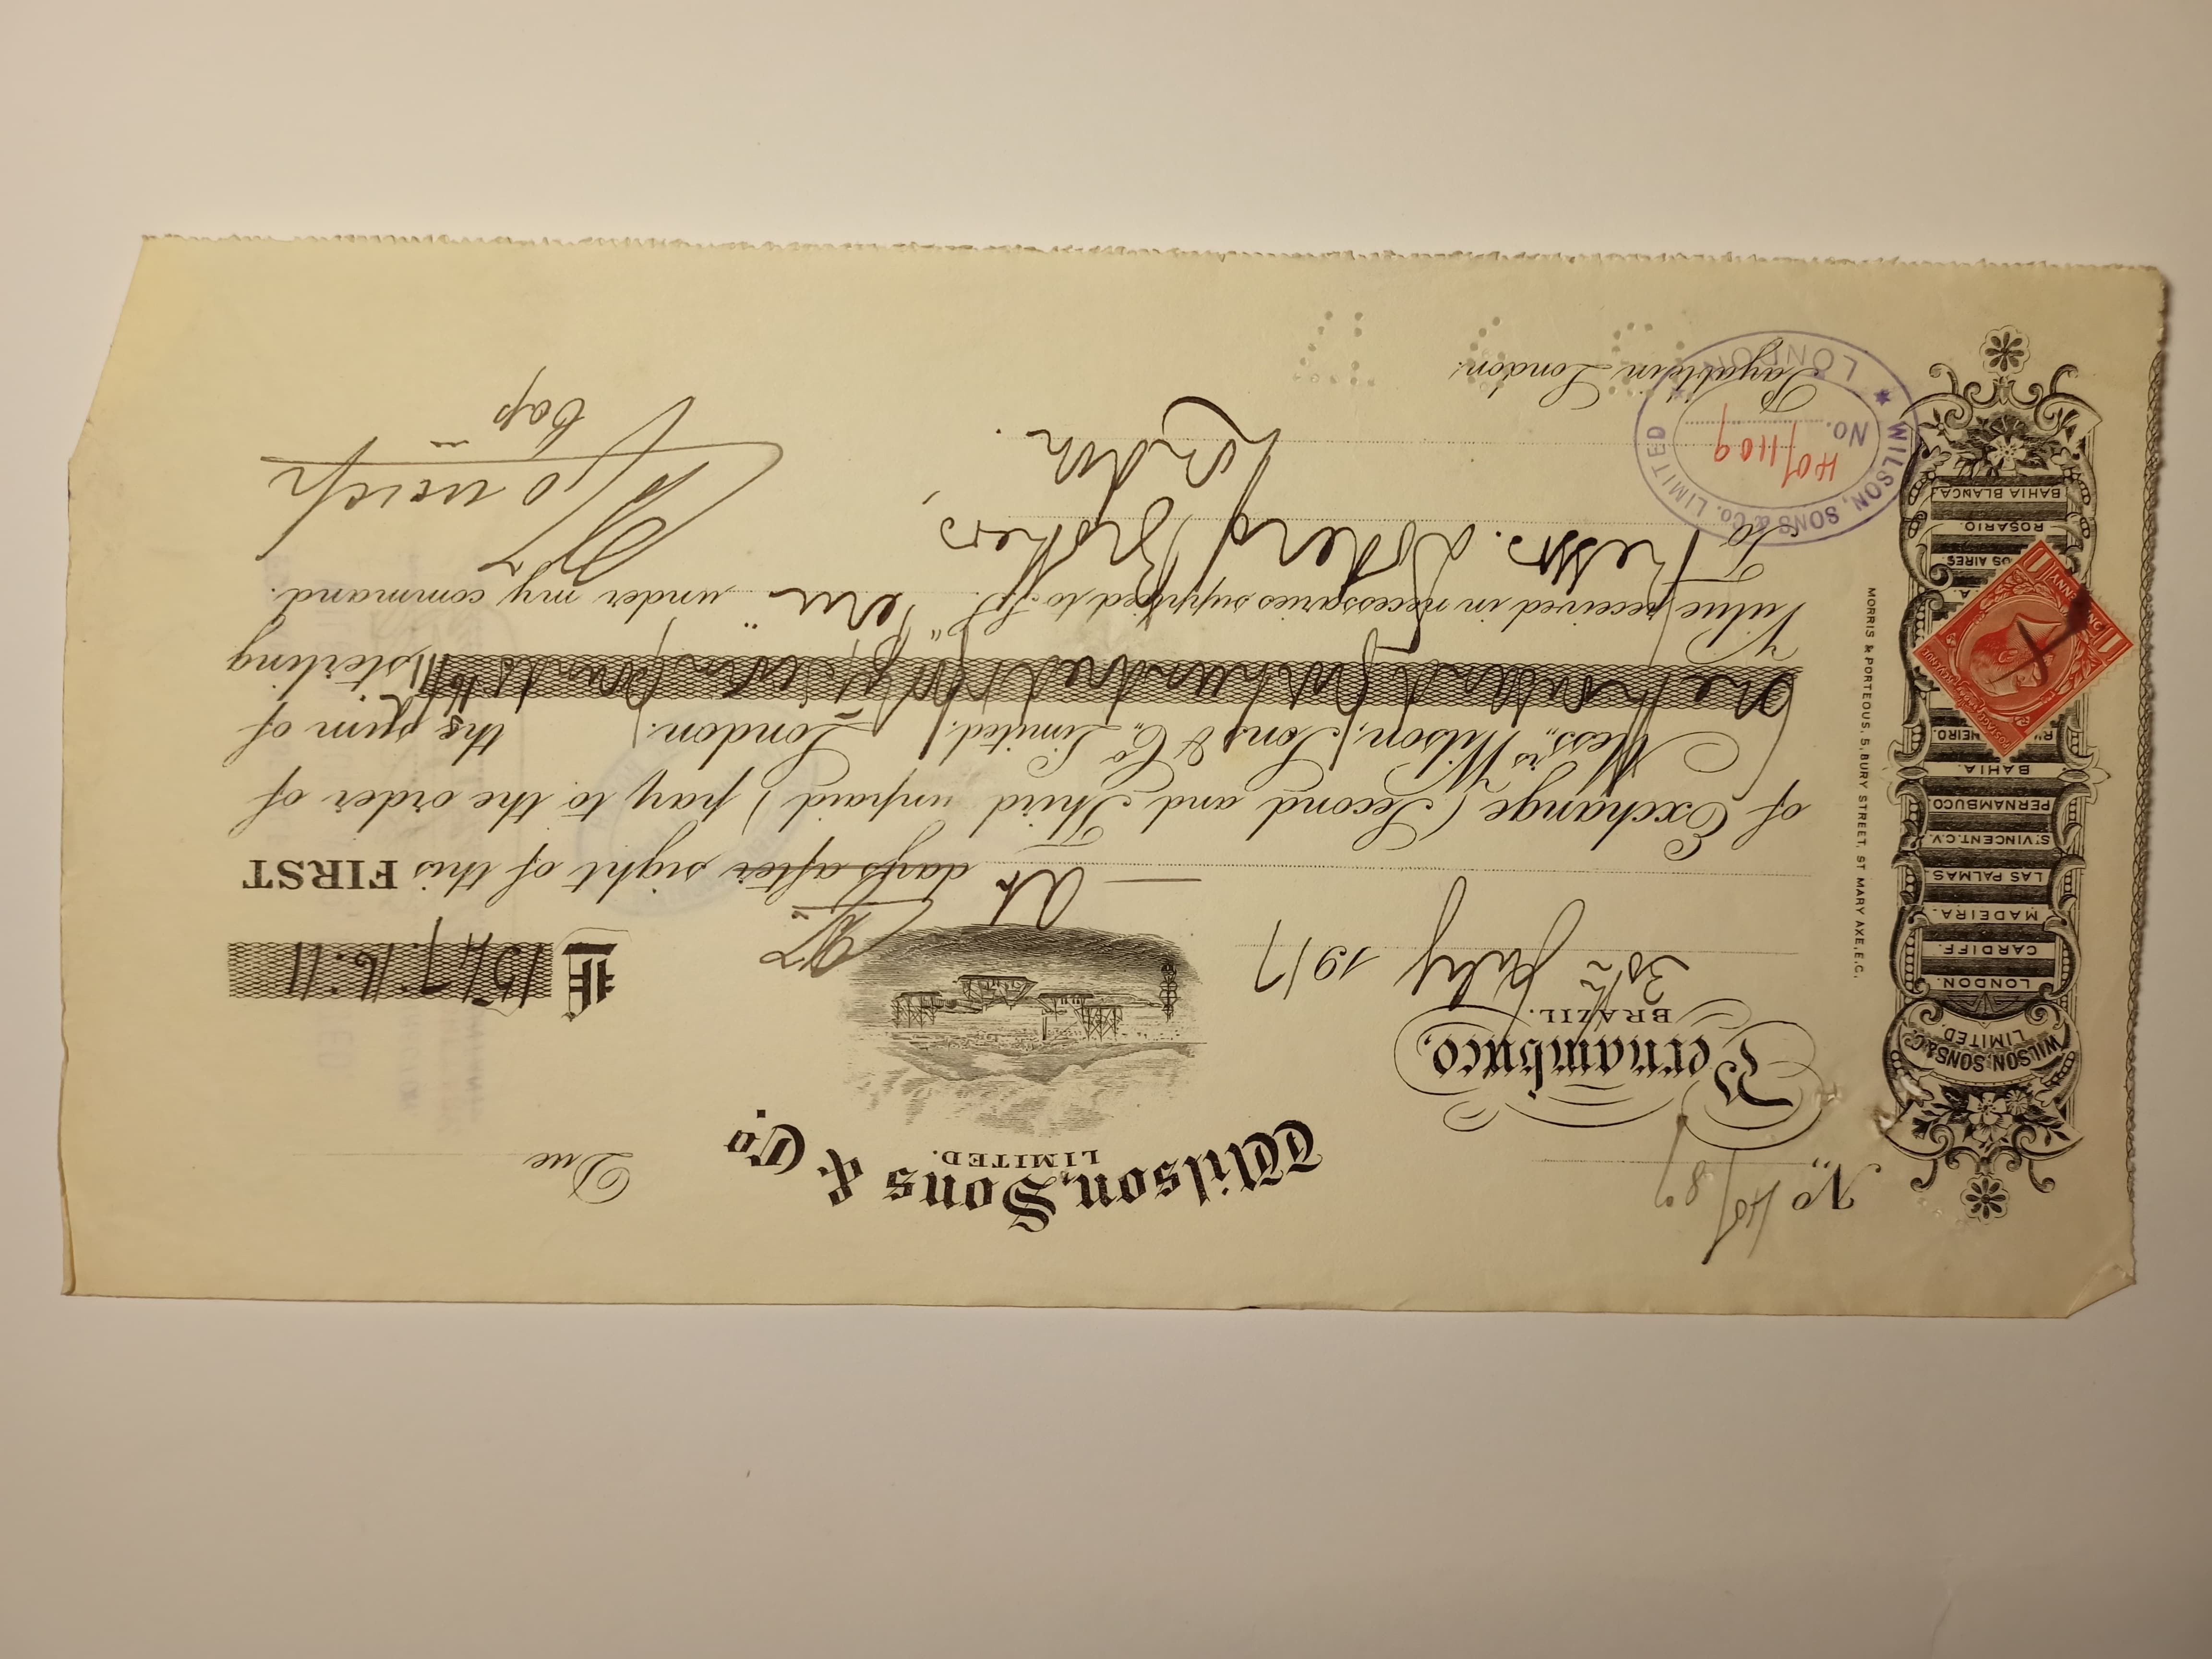 WILSON, SONS & Co.
LIMITED.
LONDON.
CARDIFF.
MADEIRA.
LAS PALMAS.
St VINCENT. C.V.
PERNAMBUCO
BAHIA.
NEIRO.
OS AIRES.
ROSARIO.
BAHIA BLANCA.
MORRIS & PORTEOUS, 5, BURY STREET, ST MARY AXE, E.C.
No
Wilson, Sons & Co.
LIMITED.
Due
Pernambuco,
BRAZIL.
30th July 1917
£ 1517.16.11
At — days after sight of this FIRST
of Exchange (Second and Third unpaid) pay to the order of
Messrs Wilson, Sons & Co., Limited, London. the sum of
One thousand five hundred and seventeen pounds 16/11 sterling
Value received in necessaries supplied to S.S. "Peru" under my command.
To Messrs. Brothers,
London.
Payable in London.
WILSON, SONS & Co. LIMITED
No.
LONDON
POSTAGE
ONE PENNY